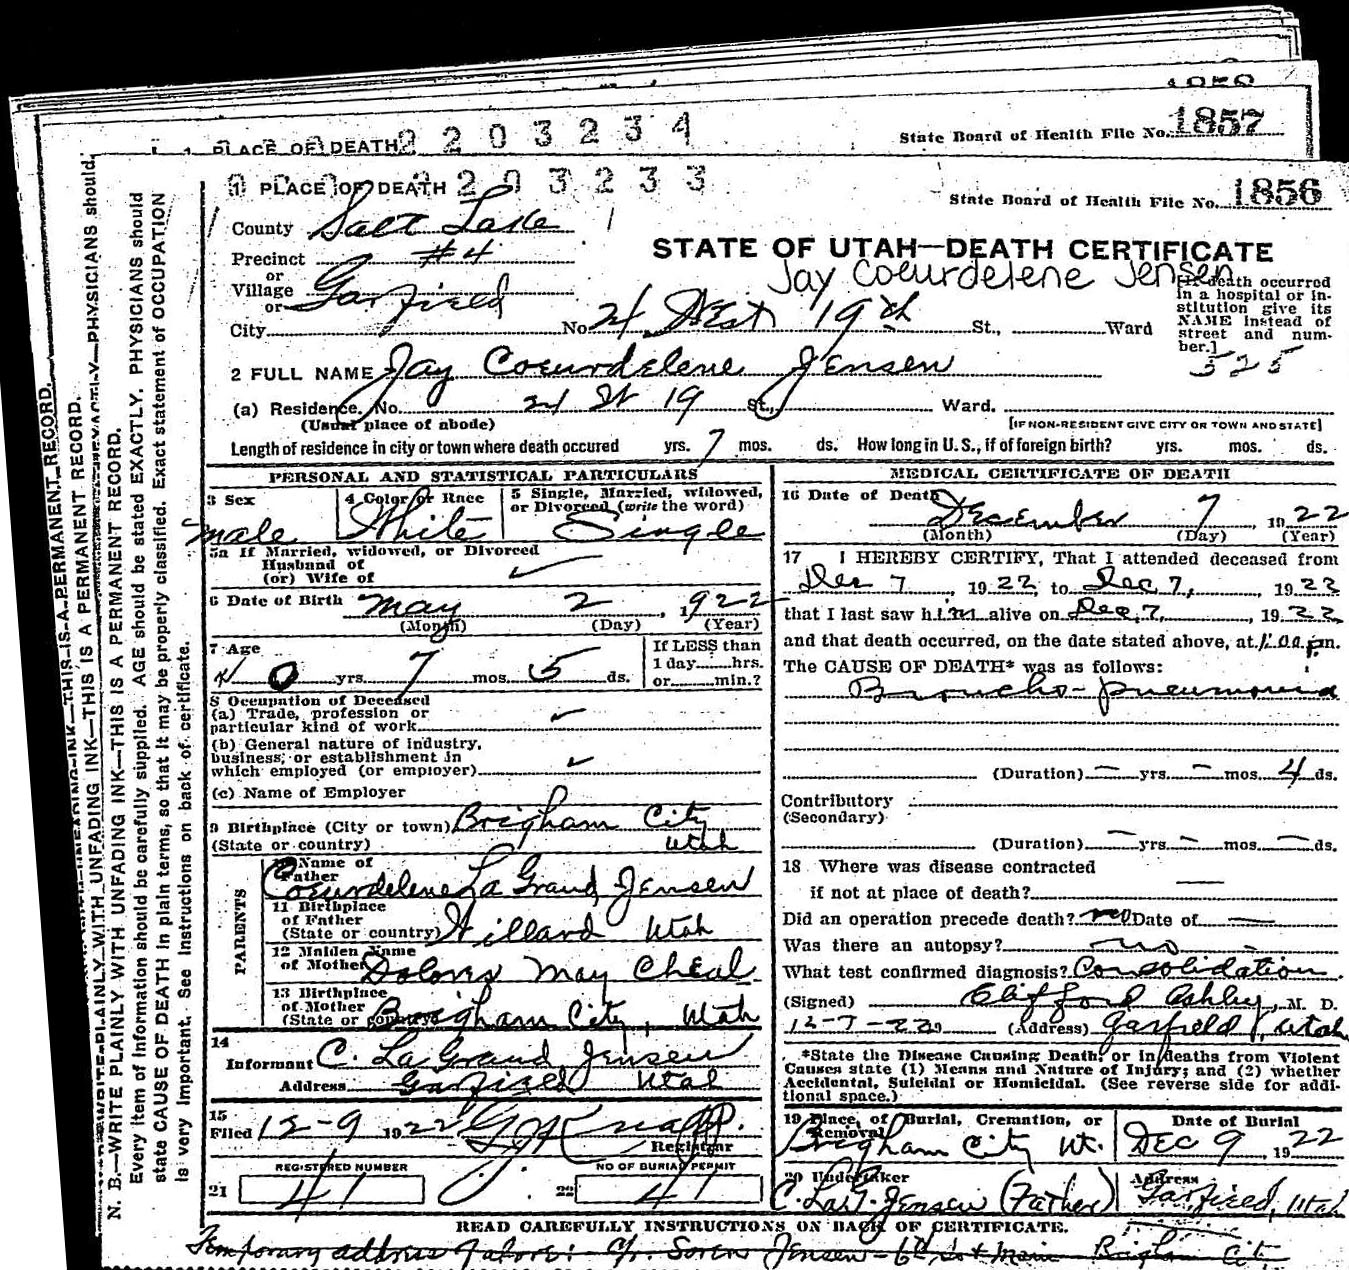 1858
1 PLACE OF DEATH 2203234 State Board of Health File No. 1857
1 PLACE OF DEATH 2203233 State Board of Health File No. 1856
County Salt Lake
Precinct #4
or
Village Garfield
or
City No 21 West 19th St., Ward
STATE OF UTAH—DEATH CERTIFICATE
Jay Coeurdelene Jensen
[If death occurred in a hospital or institution give its NAME instead of street and number.]
525
2 FULL NAME Jay Coeurdelene Jensen
(a) Residence. No. 21 W 19 St. Ward.
(Usual place of abode) [IF NON-RESIDENT GIVE CITY OR TOWN AND STATE]
Length of residence in city or town where death occured yrs. 7 mos. ds. How long in U.S., if of foreign birth? yrs. mos. ds.
PERSONAL AND STATISTICAL PARTICULARS
3 Sex male
4 Color or Race White
5 Single, Married, widowed, or Divorced (write the word) Single
5a If Married, widowed, or Divorced
Husband of
(or) Wife of
6 Date of Birth May 2, 1922
(Month) (Day) (Year)
7 Age 0 yrs. 7 mos. 5 ds.
If LESS than
1 day hrs.
or min.?
8 Occupation of Deceased
(a) Trade, profession or
particular kind of work
(b) General nature of industry,
business, or establishment in
which employed (or employer)
(c) Name of Employer
9 Birthplace (City or town) Brigham City
(State or country) Utah
PARENTS
10 Name of Father Coeurdelene La Grand Jensen
11 Birthplace
of Father
(State or country) Willard Utah
12 Maiden Name
of Mother Dolores May Cheal
13 Birthplace
of Mother
(State or country) Brigham City, Utah
14
Informant C. La Grand Jensen
Address Garfield Utah
15
Filed 12-9 1922
Registrar
REGISTERED NUMBER NO OF BURIAL PERMIT
21 41 22 41
MEDICAL CERTIFICATE OF DEATH
16 Date of Death
December 7, 1922
(Month) (Day) (Year)
17 I HEREBY CERTIFY, That I attended deceased from
Dec 7, 1922 to Dec 7, 1922
that I last saw him alive on Dec. 7, 1922
and that death occurred, on the date stated above, at 1:00 pm.
The CAUSE OF DEATH* was as follows:
Broncho-pneumonia
(Duration) — yrs. — mos. 4 ds.
Contributory
(Secondary)
(Duration) — yrs. — mos. — ds.
18 Where was disease contracted
if not at place of death? —
Did an operation precede death? no Date of —
Was there an autopsy? no
What test confirmed diagnosis? Consolidation
(Signed) Clifford Ashley, M. D.
12-7-22 (Address) Garfield, Utah
*State the Disease Causing Death, or in deaths from Violent
Causes state (1) Means and Nature of Injury; and (2) whether
Accidental, Suicidal or Homicidal. (See reverse side for additional space.)
19 Place of Burial, Cremation, or Removal Brigham City Ut.
Date of Burial Dec 9, 1922
20 Undertaker C. LaG. Jensen (Father)
Address Garfield, Utah
READ CAREFULLY INSTRUCTIONS ON BACK OF CERTIFICATE.
Temporary address of above: c/o Soren Jensen - 6th So + Main Brigham City
N. B.—WRITE PLAINLY WITH UNFADING INK—THIS IS A PERMANENT RECORD.
Every item of information should be carefully supplied. AGE should be stated EXACTLY. PHYSICIANS should
state CAUSE OF DEATH in plain terms, so that it may be properly classified. Exact statement of OCCUPATION
is very important. See instructions on back of certificate.